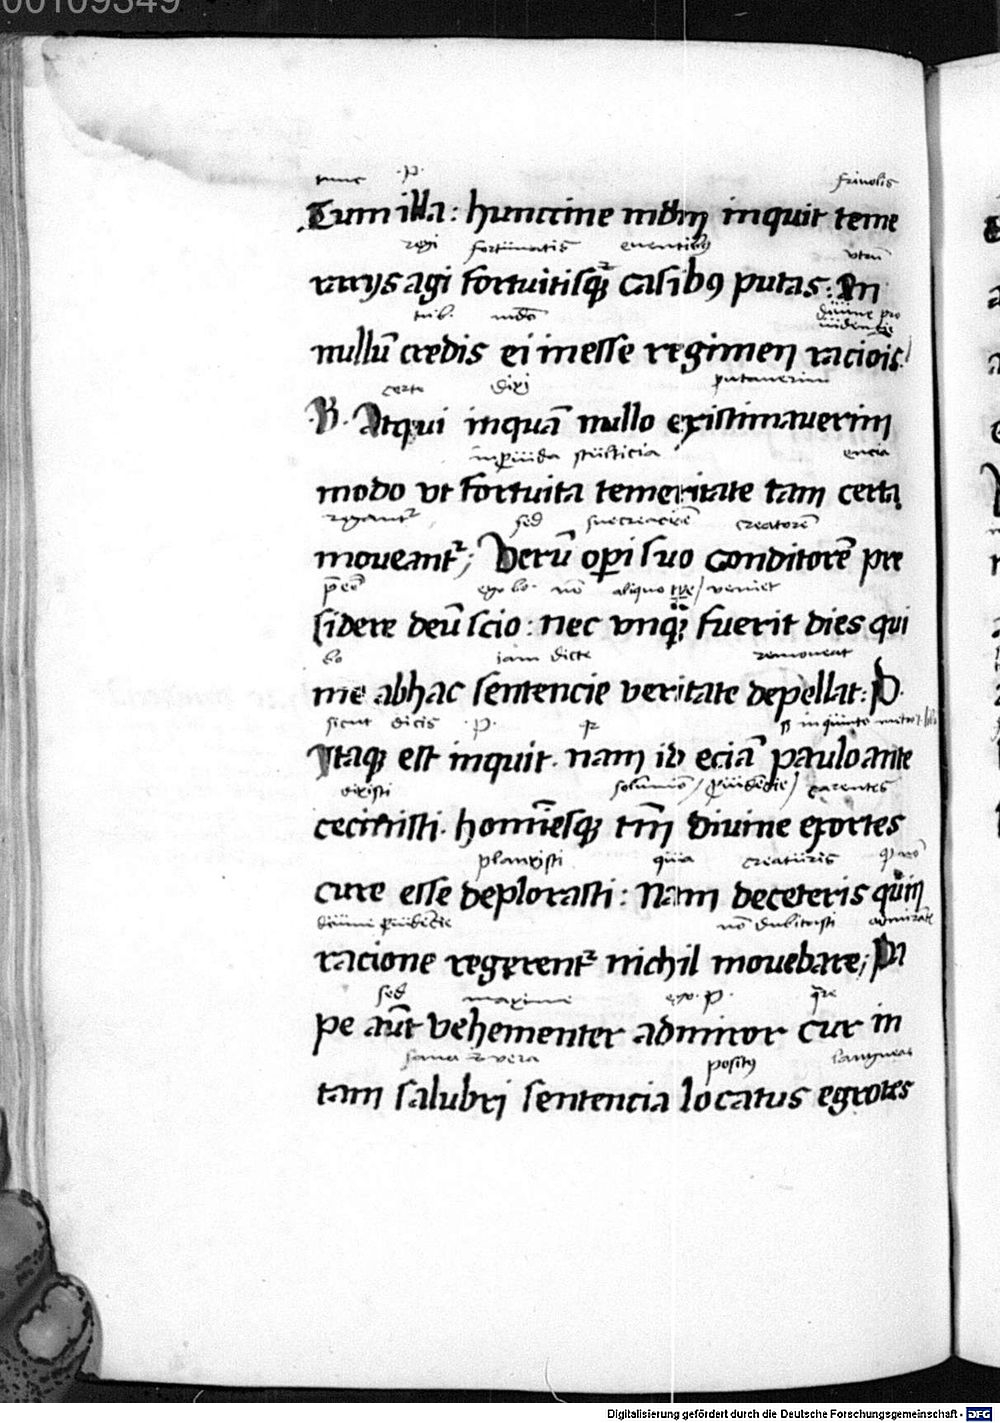 00109349
tunc .P. friuolis
Tum illa: hunccine mūdū inquit teme
regi fortunatis euentibꝰ vtrū
rarijs agi fortuitisqꝫ casibꝰ putas: An
diuine pro
uidencie
nullū credis ei inesse regimen racōis
certe dixi putauerim
.B. Atqui inquā nullo existimauerim
inprouida stulticia encia
modo vt fortuita temeritate tam certa
sed creatorē
moueant᷑; Verū operi suo conditorē pre
p̄eē ego bo. nō aliquo tp̄re veniet
sidere deū scio: nec vnqꝫ fuerit dies qui
bo iam dicte remoueat
me ab hac sentencie veritate depellat: P.
sicut dicis .P.
Itaqꝫ est inquit. nam id eciā paulo ante
dixisti carentes
cecinisti. hom̄iesqꝫ tm̄ diuine exortes
planxisti quia creaturis
cure esse deplorasti: Nam de ceteris quin
diuine prouidēcie nō dubitasti
racione regerent᷑ nichil mouebare; Pa
sed maxime ego .P. q̄re
pe aūt vehementer admiror cur in
sana et vera positꝰ langueas
tam salubri sentencia locatus egrotes
Digitalisierung gefördert durch die Deutsche Forschungsgemeinschaft - DFG